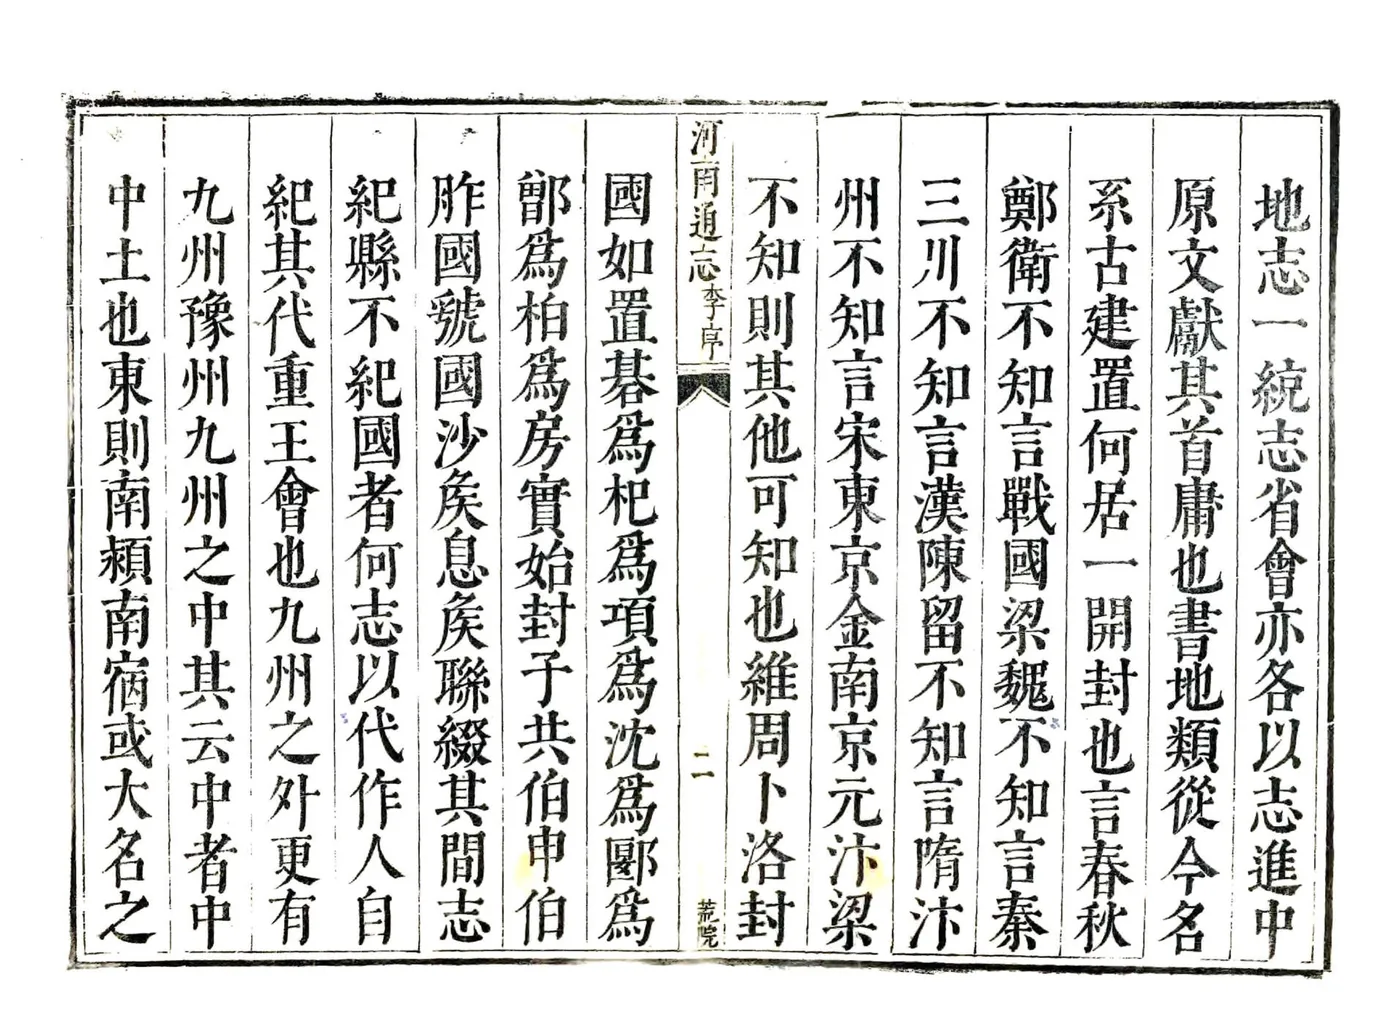 地志一統志省會亦各以志進中
原文獻其首庸也書地類從今名
系古建置何居一開封也言春秋
鄭衛不知言戰國梁魏不知言秦
三川不知言漢陳留不知言隋汴
州不知言宋東京金南京元汴梁
不知則其他可知也維周卜洛封
河南通志 李序 二
國如置碁爲杞爲項爲沈爲郾爲
鄫爲柏爲房實始封子共伯申伯
胙國虢國沙矦息矦聯綴其間志
紀縣不紀國者何志以代作人自
紀其代重王會也九州之外更有
九州豫州九州之中其云中者中
中土也東則南頻南宿或大名之